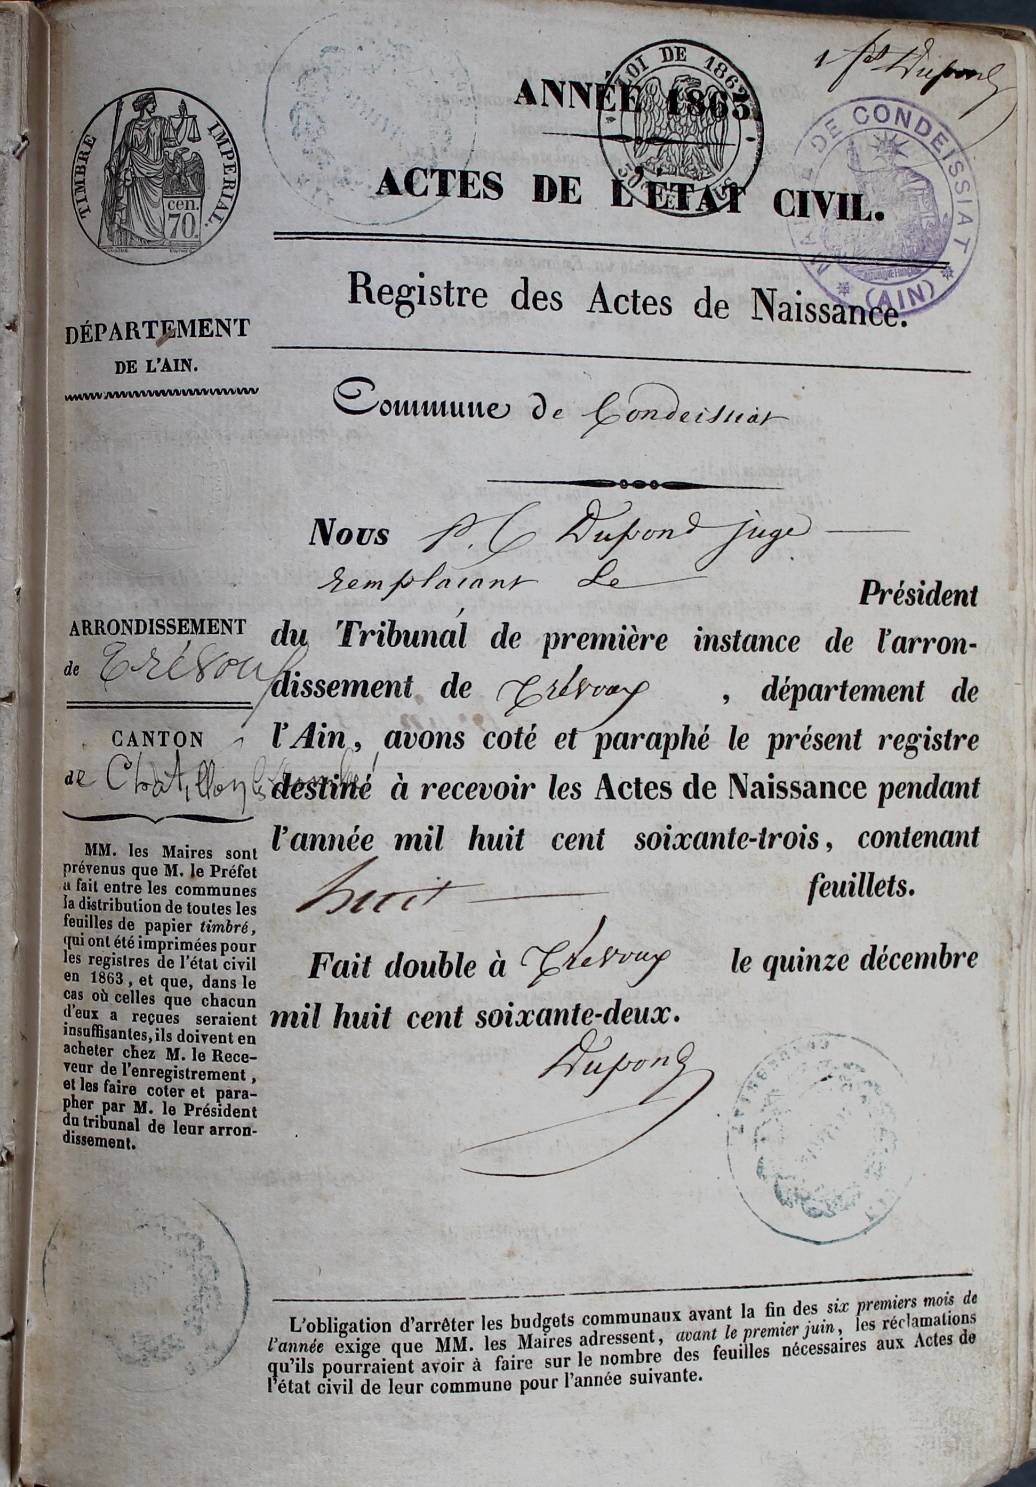 1 f.et Dupond
ANNÉE 1863.
LOI DE 1862
TIMBRE IMPÉRIAL.
70 cen.
MAIRIE DE CONDEISSIAT
* (AIN) *
ACTES DE L'ÉTAT CIVIL.
Registre des Actes de Naissance.
DÉPARTEMENT
DE L'AIN.
Commune de Condeissiat
Nous P. C Dupond juge
remplaçant Le Président
du Tribunal de première instance de l'arron-
dissement de Trévoux, département de
l'Ain, avons coté et paraphé le présent registre
destiné à recevoir les Actes de Naissance pendant
l'année mil huit cent soixante-trois, contenant
huit feuillets.
Fait double à Trévoux le quinze décembre
mil huit cent soixante-deux.
Dupond
ARRONDISSEMENT
de Trévoux
CANTON
de Châtillon
MM. les Maires sont
prévenus que M. le Préfet
a fait entre les communes
la distribution de toutes les
feuilles de papier timbré,
qui ont été imprimées pour
les registres de l'état civil
en 1863, et que, dans le
cas où celles que chacun
d'eux a reçues seraient
insuffisantes, ils doivent en
acheter chez M. le Rece-
veur de l'enregistrement,
et les faire coter et para-
pher par M. le Président
du tribunal de leur arron-
dissement.
L'obligation d'arrêter les budgets communaux avant la fin des six premiers mois de
l'année exige que MM. les Maires adressent, avant le premier juin, les réclamations
qu'ils pourraient avoir à faire sur le nombre des feuilles nécessaires aux Actes de
l'état civil de leur commune pour l'année suivante.